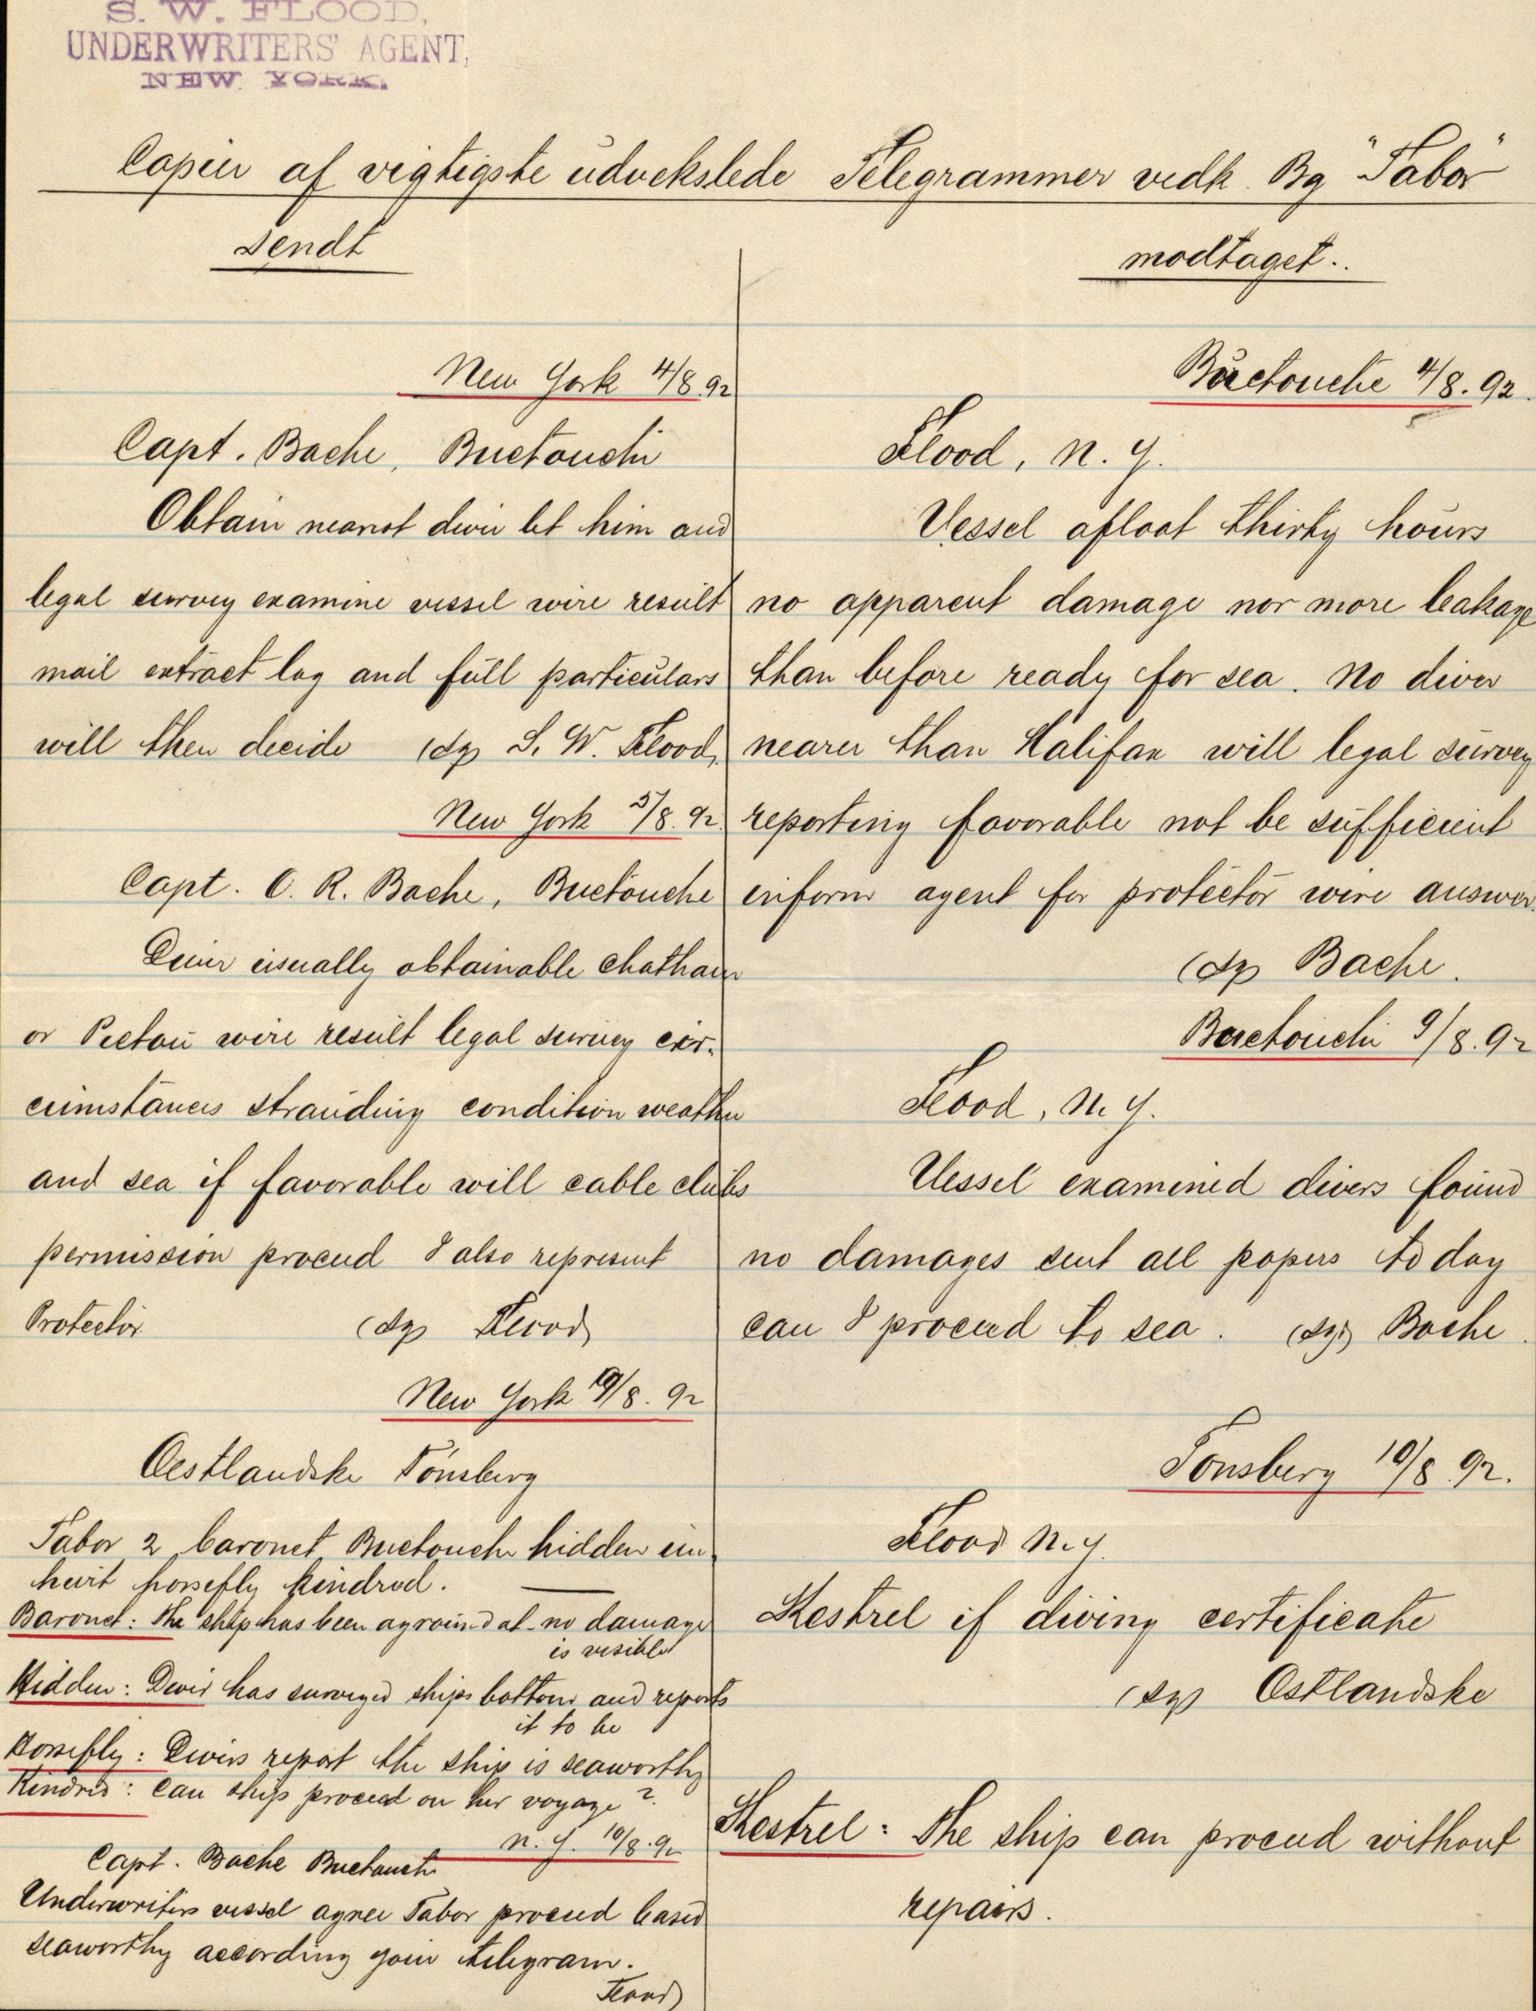 S. W. FLOOD,
UNDERWRITERS' AGENT,
NEW YORK.
Copier af vigtigste udvekslede Telegrammer vedk. Bg "Tabor"
sendt
New York 4/8.92
Capt. Bache, Buctouche
Obtain nearest diver let him and
legal survey examine vessel wire result
mail extract log and full particulars
will then decide (sg) S. W. Flood,
New York 5/8.92
Capt. O. R. Bache, Buctouche
Diver usually obtainable Chatham
or Pictou wire result legal survey cir-
cumstances stranding condition weather
and sea if favorable will cable clubs
permission proceed I also represent
Protector (sg) Flood
New York 10/8.92
Oestlandske Tönsberg
Tabor 2 baronet Buctouche hidden in
horsefly kindred.
Baronet: The ship has been aground at - no damage
is visible
Hidden: Diver has surveyed ships bottom and reports
it to be
Horsefly: Divers report the ship is seaworthy
Kindred: can ship proceed on her voyage?
N.Y. 10/8.92
Capt. Bache Buctouche
Underwriters vessel agree Tabor proceed based
seaworthy according your telegram.
Flood
modtaget..
Buctouche 4/8.92.
Flood, N. Y.
Vessel afloat thirty hours
no apparent damage nor more leakage
than before ready for sea. No diver
nearer than Halifax will legal survey
reporting favorable not be sufficient
inform agent for protector wire answer.
(sg) Bache.
Buctouche 9/8.92
Flood, N. Y.
Vessel examined divers found
no damages sent all papers to day
can I proceed to sea. (sg) Bache.
Tonsberg 10/8 92.
Flood N.Y.
Kestrel if diving certificate
(sg) Ostlandske
Kestrel: The ship can proceed without
repairs.